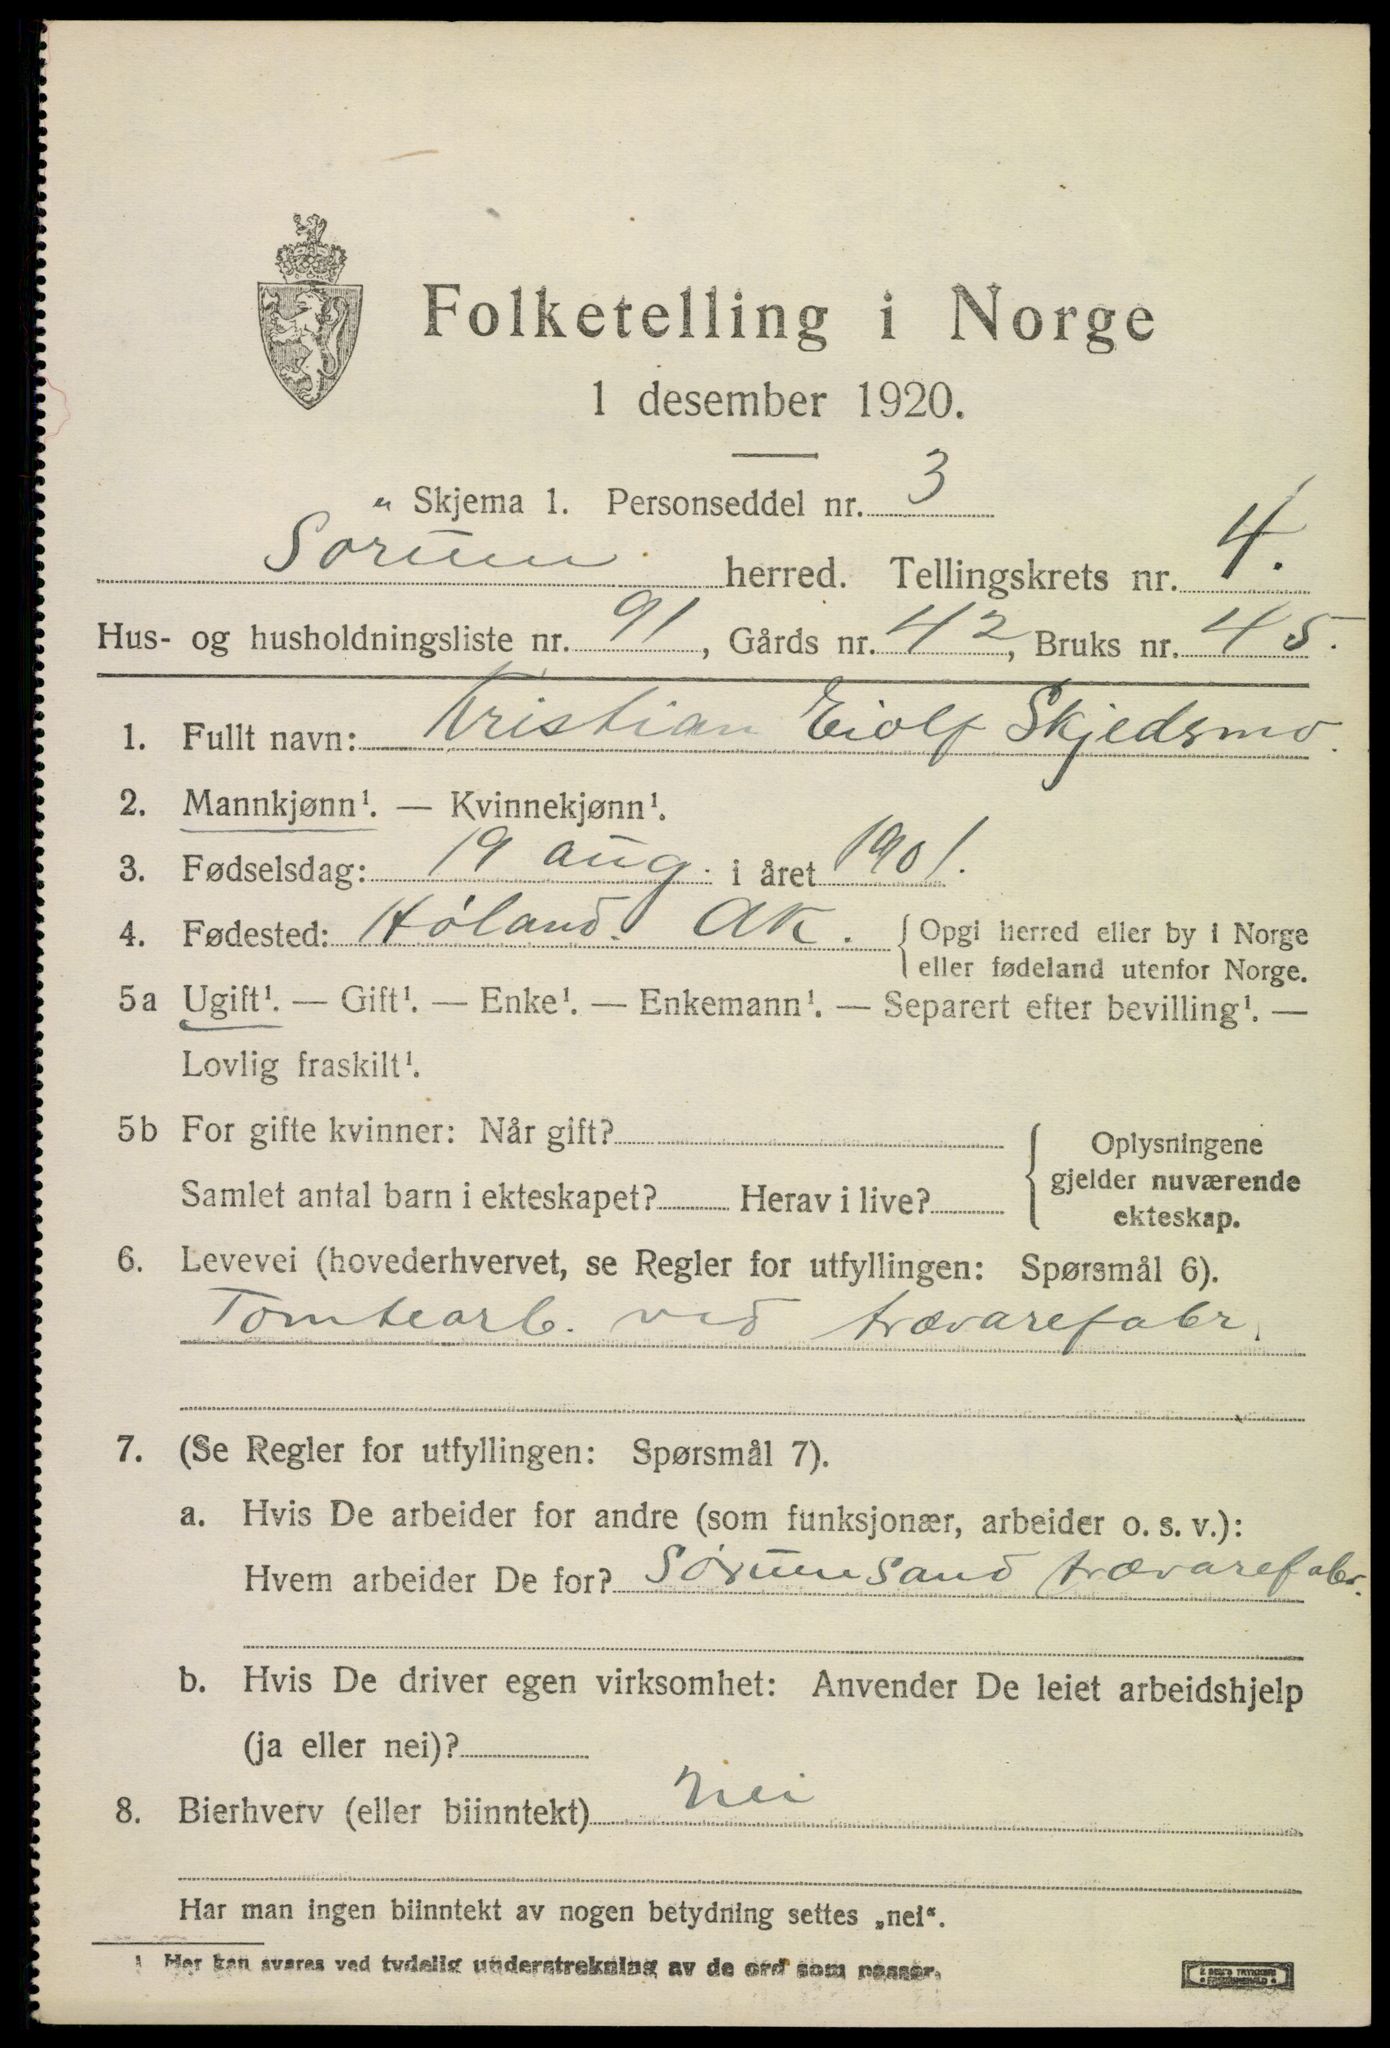 Folketelling i Norge
1 desember 1920.
„ Skjema 1. Personseddel nr. 3
Sørum herred. Tellingskrets nr. 4.
Hus- og husholdningsliste nr. 91, Gårds nr. 42, Bruks nr. 45.
1. Fullt navn: Kristian Eiolf Skjedsmo.
2. Mannkjønn¹. — Kvinnekjønn¹.
3. Fødselsdag: 19 aug. i året 1901.
4. Fødested: Høland. Ak. { Opgi herred eller by i Norge
eller fødeland utenfor Norge.
5a Ugift¹. — Gift¹. — Enke¹. — Enkemann¹. — Separert efter bevilling¹. —
Lovlig fraskilt¹.
5b For gifte kvinner: Når gift?
Samlet antal barn i ekteskapet? Herav i live?
{ Oplysningene
gjelder nuværende
ekteskap.
6. Levevei (hovederhvervet, se Regler for utfyllingen: Spørsmål 6).
Tomtearb. ved trævarefabr.
7. (Se Regler for utfyllingen: Spørsmål 7).
a. Hvis De arbeider for andre (som funksjonær, arbeider o. s. v.):
Hvem arbeider De for? Sørumsand trævarefabr.
b. Hvis De driver egen virksomhet: Anvender De leiet arbeidshjelp
(ja eller nei)?
8. Bierhverv (eller biinntekt) Nei
Har man ingen biinntekt av nogen betydning settes „nei“.
¹ Her kan svares ved tydelig understrekning av de ord som passer.